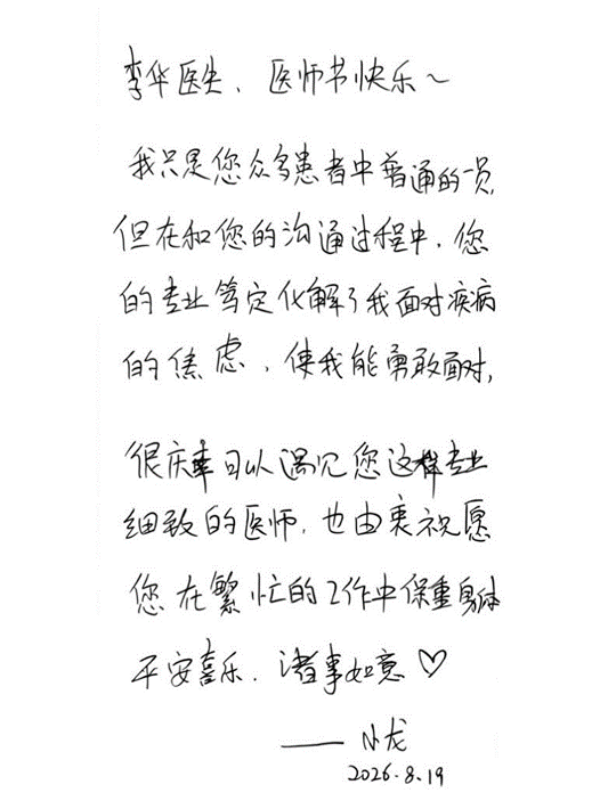 李华医生、医师节快乐~
我只是您众多患者中普通的一员,
但在和您的沟通过程中,您
的专业笃定化解了我面对疾病
的焦虑,使我能勇敢面对,
很庆幸可以遇见您这样专业
细致的医师,也由衷祝愿
您在繁忙的工作中保重身体
平安喜乐、诸事如意♡
——小龙
2026.8.19